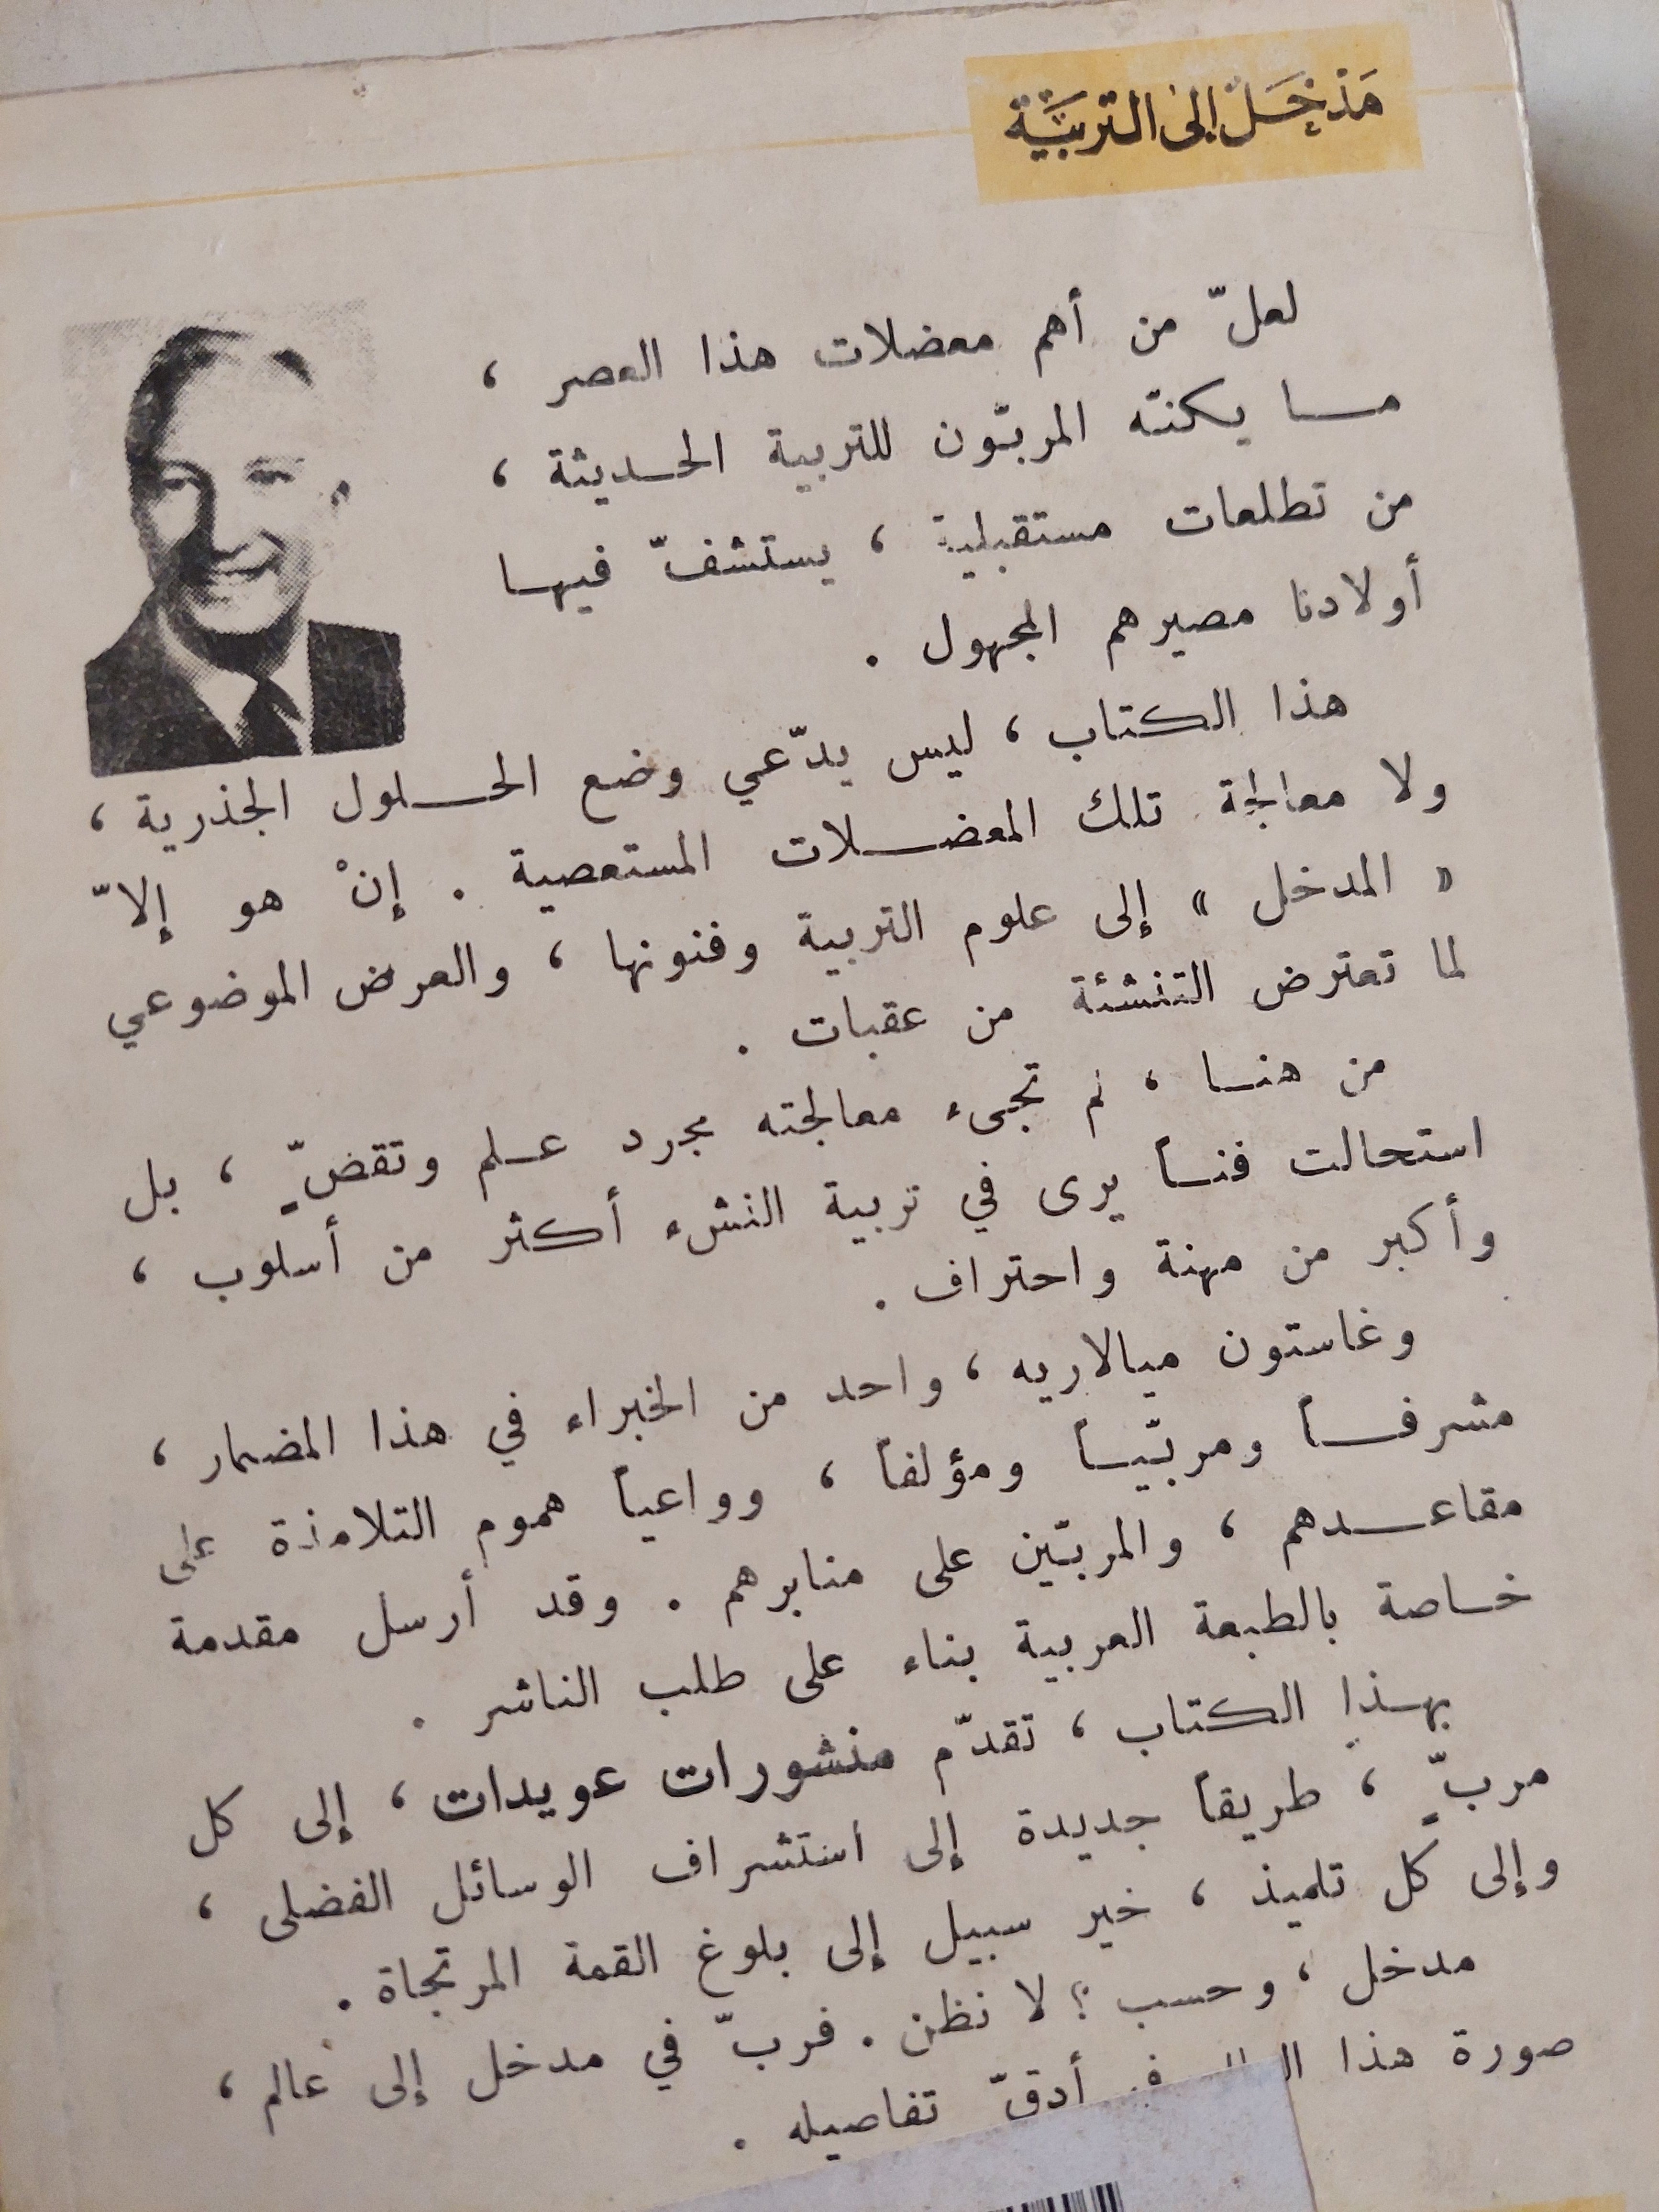 مَدْخَل إلى التربيَة
لعلّ من أهم معضلات هذا العصر ،
مــا يكنّه المربّون للتربية الحــديثة ،
من تطلعات مستقبلية ، يستشفّ فيهــا
أولادنا مصيرهم المجهول .
هذا الكتاب ، ليس يدّعي وضع الحــلول الجذرية ،
ولا معالجة تلك المعضــلات المستعصية . إنْ هو إلاّ
« المدخل » إلى علوم التربية وفنونها ، والعرض الموضوعي
لما تعترض التنشئة من عقبات .
من هنــا ، لم تجيء معالجته مجرد عــلم وتقضٍّ ، بل
استحالت فنــاً يرى في تربية النشء أكثر من أسلوب ،
وأكبر من مهنة واحتراف .
وغاستون ميالاريه ، واحد من الخبراء في هذا المضمار ،
مشرفــاً ومربّيــاً ومؤلفاً ، وواعياً هموم التلامذة على
مقاعــدهم ، والمربّين على منابرهم . وقد أرسل مقدمة
خــاصة بالطبعة العربية بناء على طلب الناشر .
بهــذا الكتاب ، تقدّم منشورات عويدات ، إلى كل
مربٍّ ، طريقاً جديدة إلى استشراف الوسائل الفضلى ،
وإلى كل تلميذ ، خير سبيل إلى بلوغ القمة المرتجاة .
مدخل ، وحسب ؟ لا نظن . فربّ في مدخل إلى عالم ،
صورة هذا أدقّ تفاصيله .